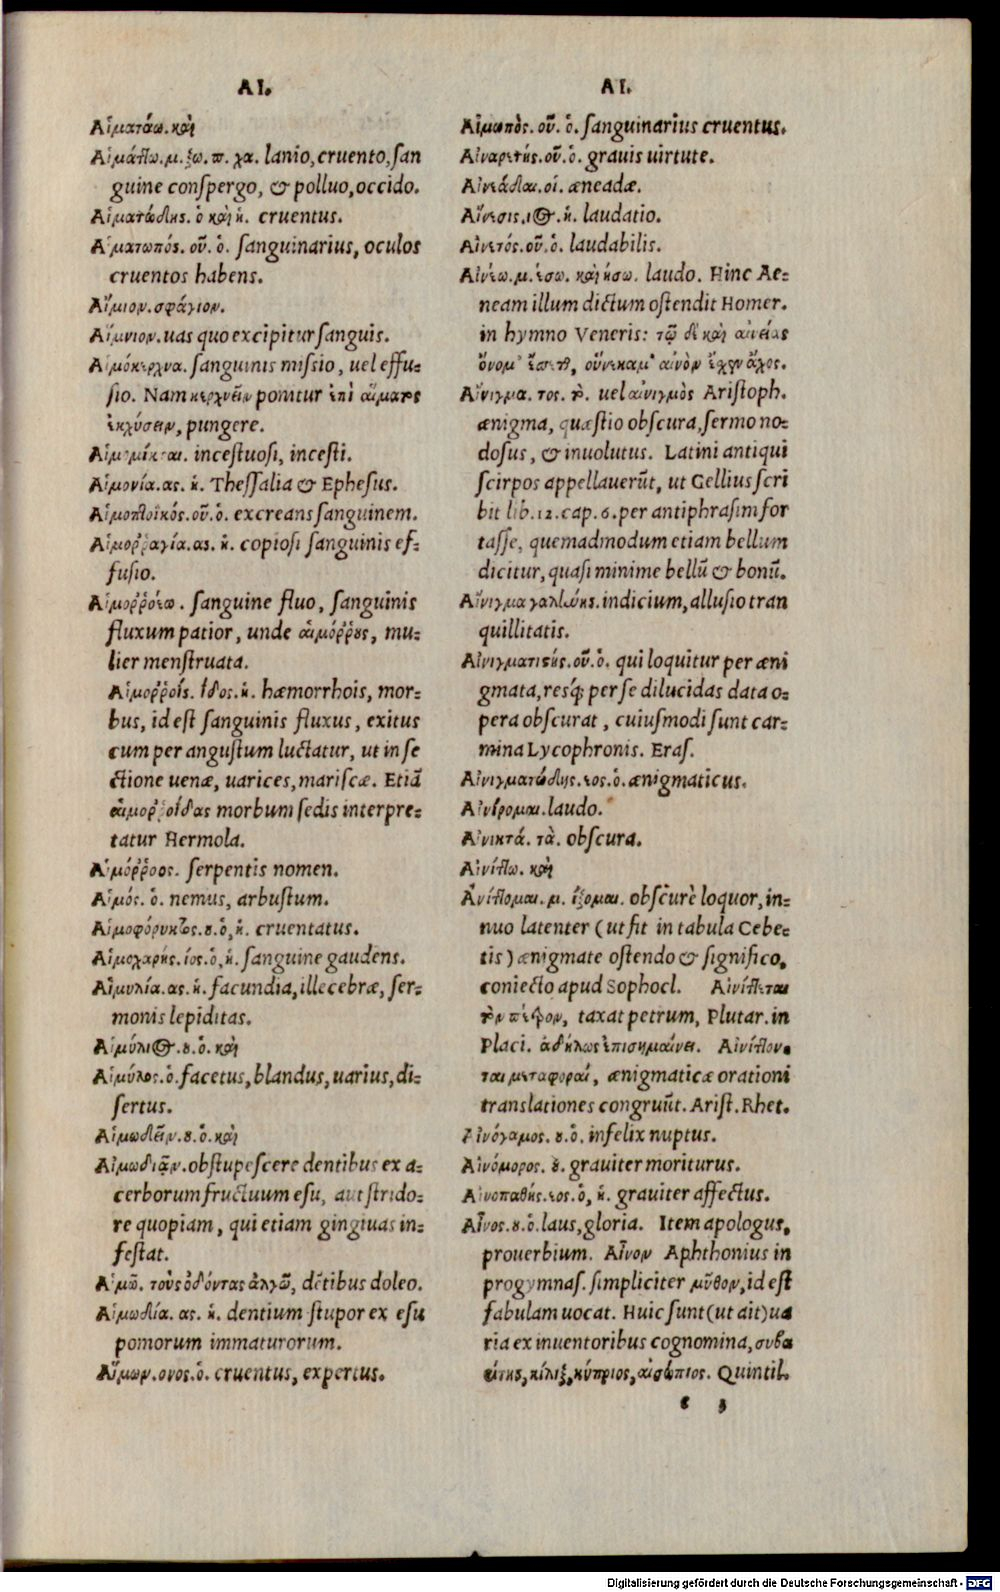 AI.
Αἱματάω. καὶ
Αἱμάττω. μ. ξω. π. χα. lanio, cruento, ſan
guine conſpergo, & polluo, occido.
Αἱματώδης. ὁ καὶ ἡ. cruentus.
Αἱματωπός. οῦ. ὁ. ſanguinarius, oculos
cruentos habens.
Αἵμιον. σφάγιον.
Αἵμνιον. uas quo excipitur ſanguis.
Αἱμόκερχνα. ſanguinis miſsio, uel effu-
ſio. Nam κερχνεῖν ponitur ἐπὶ αἵματος
ἐκχύσειν, pungere.
Αἱμομίκται. inceſtuoſi, inceſti.
Αἱμονία. ας. ἡ. Theſſalia & Epheſus.
Αἱμοπτοϊκός. οῦ. ὁ. excreans ſanguinem.
Αἱμοῤῥαγία. ας. ἡ. copioſi ſanguinis ef-
fuſio.
Αἱμοῤῥοέω. ſanguine fluo, ſanguinis
fluxum patior, unde αἱμόῤῥους, mu-
lier menſtruata.
Αἱμοῤῥοΐς. ΐδος. ἡ. hæmorrhois, mor-
bus, id eſt ſanguinis fluxus, exitus
cum per anguſtum luctatur, ut in ſe
ctione uenæ, uarices, mariſcæ. Etiã
αἱμοῤῥοΐδας morbum ſedis interpre-
tatur Hermola.
Αἱμόῤῥοος. ſerpentis nomen.
Αἱμός. ὁ. nemus, arbuſtum.
Αἱμοφόρυκτος. ȣ. ὁ, ἡ. cruentatus.
Αἱμοχαρής. έος. ὁ, ἡ. ſanguine gaudens.
Αἱμυλία. ας. ἡ. facundia, illecebræ, ſer-
monis lepiditas.
Αἱμύλιος. ȣ. ὁ. καὶ
Αἱμύλος. ὁ. facetus, blandus, uarius, di-
ſertus.
Αἱμωδεῖν. ȣ. ὁ. καὶ
Αἱμωδιᾷν. obſtupeſcere dentibus ex a-
cerborum fructuum eſu, aut ſtrido-
re quopiam, qui etiam gingiuas in-
feſtat.
Αἱμῶ. τοὺς ὀδόντας ἀλγῶ, dẽtibus doleo.
Αἱμωδία. ας. ἡ. dentium ſtupor ex eſu
pomorum immaturorum.
Αἵμων. ονος. ὁ. cruentus, expertus.
AI.
Αἱμωπὸς. οῦ. ὁ. ſanguinarius cruentus.
Αἰναρετής. οῦ. ὁ. grauis uirtute.
Αἰνεάδαι. οἱ. æneadæ.
Αἴνεσις. ιος. ἡ. laudatio.
Αἰνετός. οῦ. ὁ. laudabilis.
Αἰνέω. μ. έσω. καὶ ήσω. laudo. Hinc Ae-
neam illum dictum oſtendit Homer.
in hymno Veneris: τῷ δὲ καὶ αἰνείας
ὄνομ' ἔσετ', οὕνεκα μ' αἰνὸν ἔχεν ἄχος.
Αἴνιγμα. τος. τὸ. uel αἰνιγμὸς Ariſtoph.
ænigma, quæſtio obſcura, ſermo no-
doſus, & inuolutus. Latini antiqui
ſcirpos appellauerũt, ut Gellius ſcri
bit lib. 12. cap. 6. per antiphraſim for
taſſe, quemadmodum etiam bellum
dicitur, quaſi minime bellũ & bonũ.
Αἴνιγμα γαλήνης. indicium, alluſio tran
quillitatis.
Αἰνιγματιστής. οῦ. ὁ. qui loquitur per æni
gmata, resq́; per ſe dilucidas data o-
pera obſcurat, cuiuſmodi ſunt car-
mina Lycophronis. Eraſ.
Αἰνιγματώδης. εος. ὁ. ænigmaticus.
Αἰνίρομαι. laudo.
Αἰνικτά. τὰ. obſcura.
Αἰνίττω. καὶ
Αἰνίττομαι. μ. ίξομαι. obſcurè loquor, in-
nuo latenter (ut fit in tabula Cebe-
tis) ænigmate oſtendo & ſignifico,
coniecto apud Sophocl. Αἰνίττεται
τὸν πέτρον, taxat petrum, Plutar. in
Placi. ἀδήλως ἐπισημαίνει. Αἰνίττον-
ται μεταφοραί, ænigmaticæ orationi
translationes congruũt. Ariſt. Rhet.
Αἰνόγαμος. ȣ. ὁ. infelix nuptus.
Αἰνόμορος. ȣ. grauiter moriturus.
Αἰνοπαθής. εος. ὁ, ἡ. grauiter affectus.
Αἶνος. ȣ. ὁ. laus, gloria. Item apologus,
prouerbium. Αἶνον Aphthonius in
progymnaſ. ſimpliciter μῦθον, id eſt
fabulam uocat. Huic ſunt (ut ait) ua
ria ex inuentoribus cognomina, συβα
ρίτης, κίλιξ, κύπριος, αἰσώπιος. Quintil.
e 3
Digitalisierung gefördert durch die Deutsche Forschungsgemeinschaft - DFG